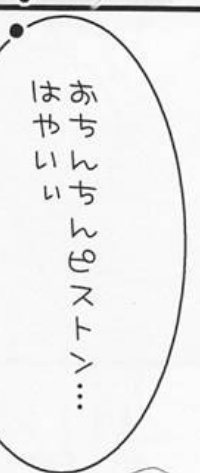 おちんちんピストン…
はやいぃ